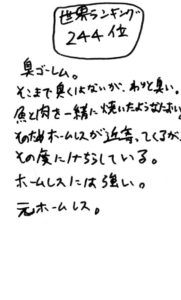 世界ランキング
244位
臭ゴーレム。
そこまで臭くはないが、わりと臭い。
魚と肉を一緒に焼いたようなにおい。
そのためホームレスが近寄ってくるが、
その度にけちらしている。
ホームレスには強い。
元ホームレス。